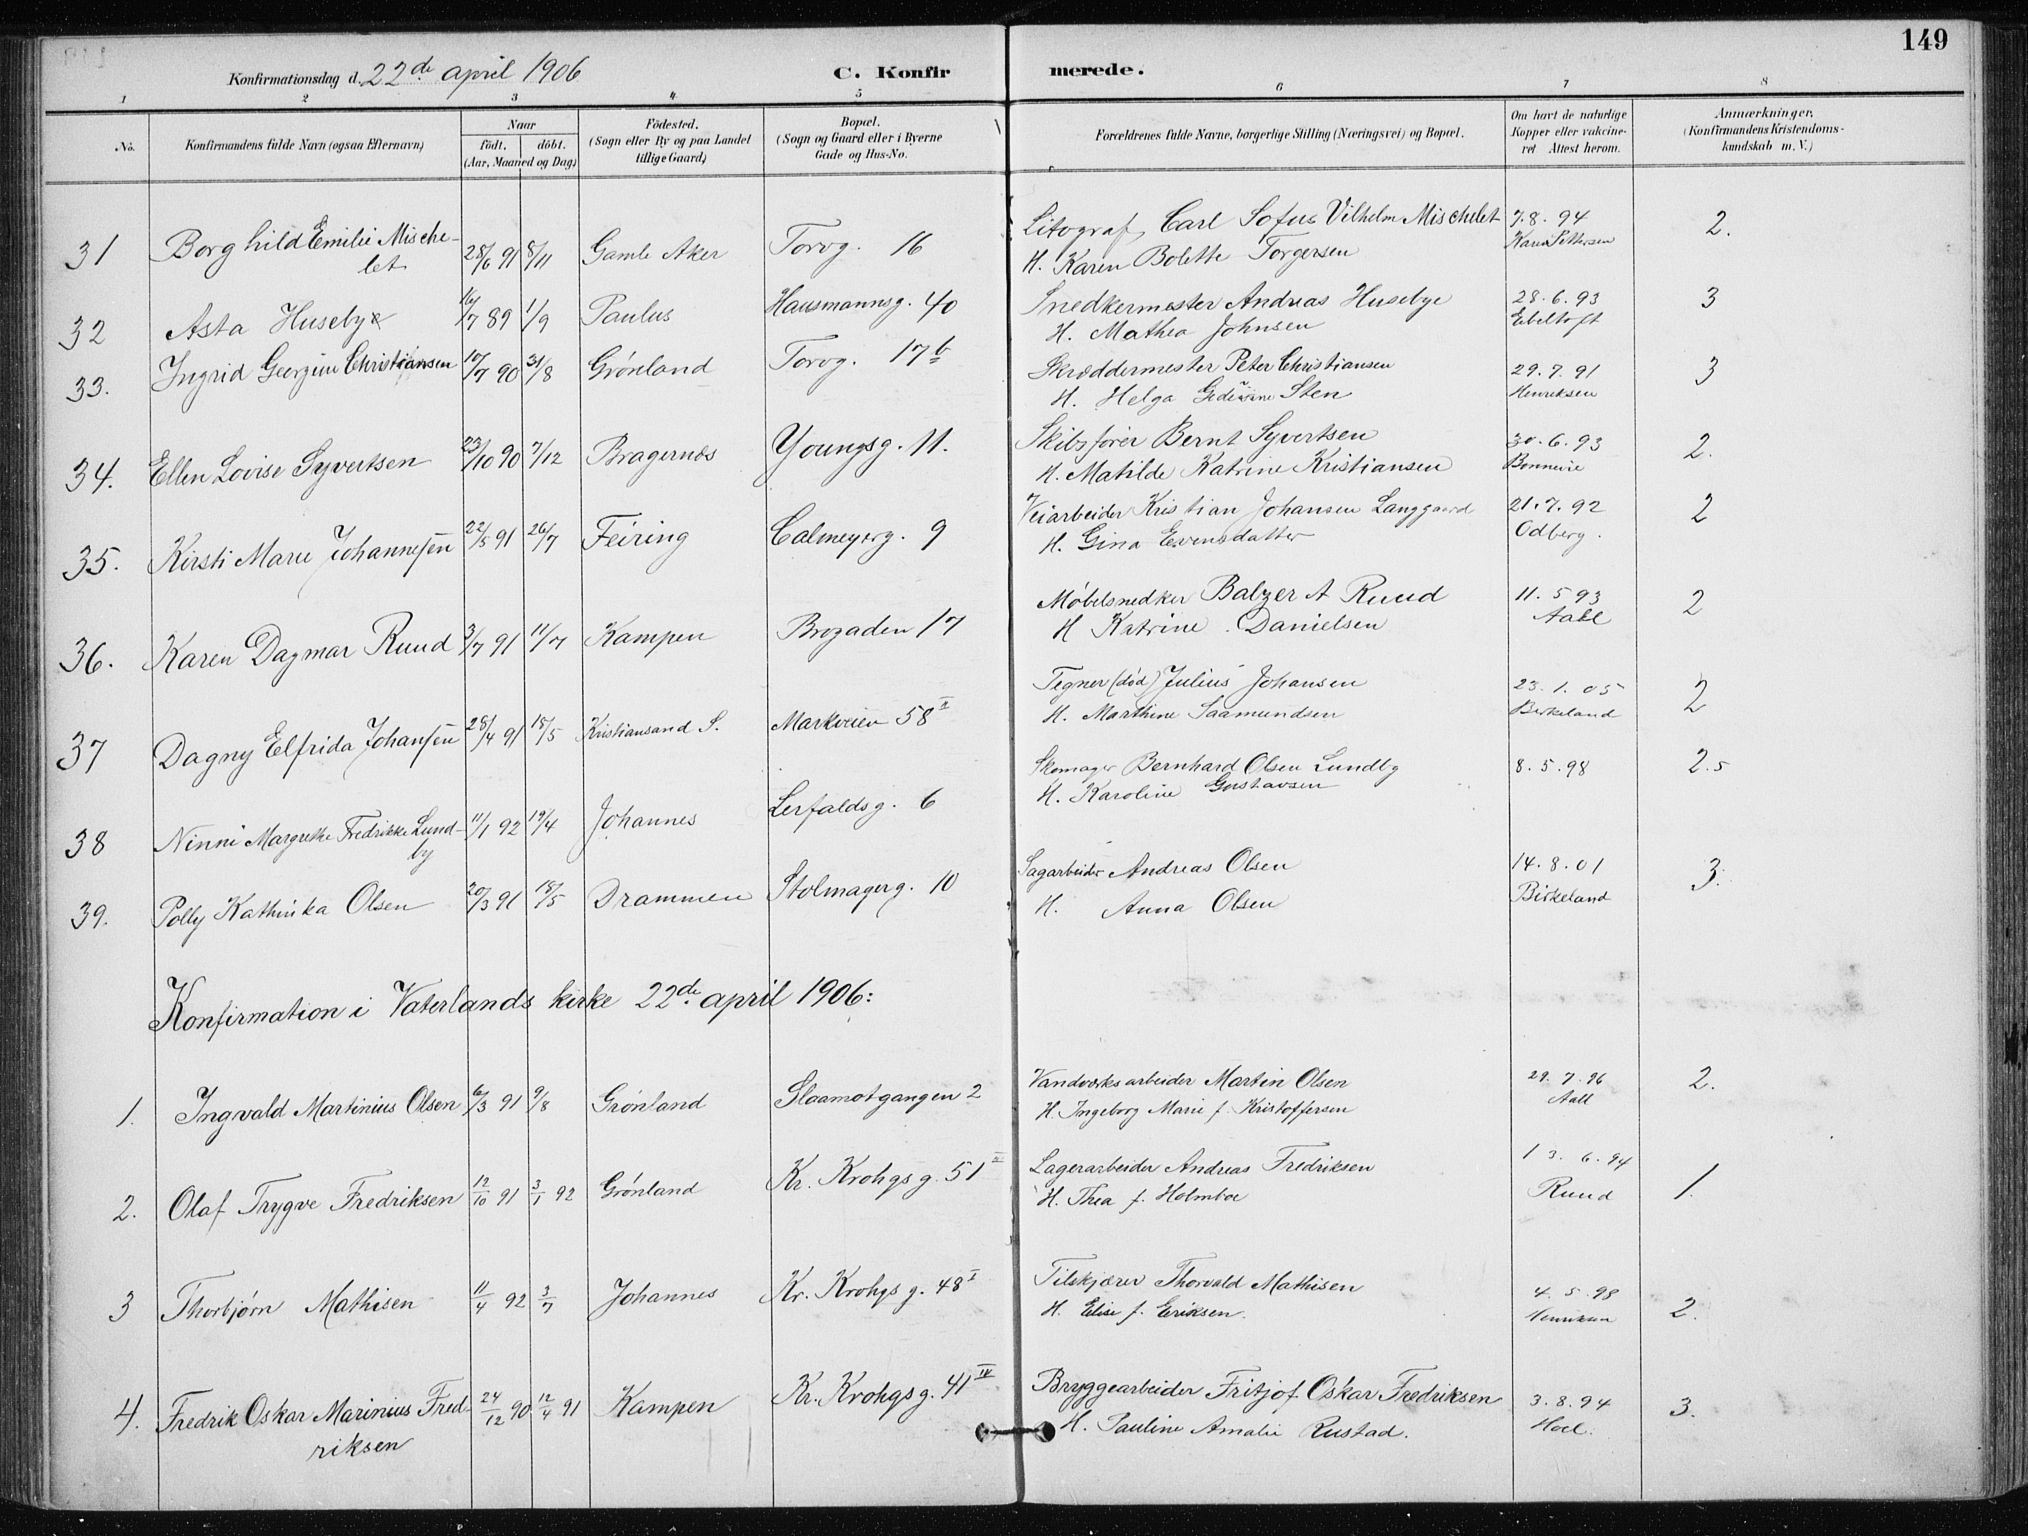 149
Konfirmationsdag d. 22de april 1906
C. Konfirmerede.
1 2 3 4 5 6 7 8
No.
Konfirmandens fulde Navn (ogsaa Efternavn)
Naar
født. døbt.
(Aar, Maaned og Dag)
Fødested.
(Sogn eller By og paa Landet
tillige Gaard)
Bopæl.
(Sogn og Gaard eller i Byerne
Gade og Hus-No.
Forældrenes fulde Navne, borgerlige Stilling (Næringsvei) og Bopæl.
Om havt de naturlige
Kopper eller vakcine-
ret Attest herom.
Anmærkninger.
(Konfirmandens Kristendoms-
kundskab m. V.)
31 Borghild Emilie Miche- 28/6 91 8/11 Gamle Aker Torvg. 16 Litograf Carl Sofus Vilhelm Mischelet 7.8.94 2.
let H. Karen Bolette Torgersen
32 Asta Huseby 16/7 89 1/9 Paulus Hausmannsg. 40 Snedkermester Andreas Husebye 28.6.93 3
H. Mathea Johnsen Ebeltoft
33. Ingrid Georgine Christiansen 10/7 90 31/8 Grönland Torvg. 17b Skræddermester Peter Christiansen 29.7.91 3
H. Helga Sten Henriksen
34. Ellen Lovise Syvertsen 23/10 90 7/12 Bragernæs Youngsg. 11. Skibsfører Bernt Syvertsen 30.6.93 2.
H. Matilde Katrine Kristiansen Bonnevie
35. Kirsti Marie Johannesen 22/5 91 26/7 Feiring Calmeyerg. 9 Veiarbeider Kristian Johansen Langgaard 21.7.92 2
H. Gina Evensdatter Odberg.
36. Karen Dagmar Ruud 3/7 91 11/7 Kampen Brogaden 17 Møbelsnedker Balzer A Ruud 11.5 93 2
H Katrine Danielsen Aall
37 Dagny Elfrida Johansen 28/4 91 18/5 Kristiansand S. Markveien 58 II Tegner (død) Julius Johansen 23.1.05 2
H. Marthine Saamundsen Birkeland
38 Ninni Margrethe Fredrikke Lund- 11/1 92 19/4 Johannes Lerfaldsg. 6 Skomager Bernhard Olsen Lundby 8.5.98 2.5
by H. Karoline Gustavsen
39. Polly Kathinka Olsen 20/3 91 18/5 Drammen Stolmagerg. 10 Sagarbeider Andreas Olsen 14.8.01 3.
H. Anna Olsen Birkeland
Konfirmation i Vaterlands kirke 22de april 1906:
1. Ingvald Martinius Olsen 6/3 91 9/8 Grönland Slaamotgangen 2 Vandværksarbeider Martin Olsen 29.7.96 2.
H. Ingeborg Marie f. Kristoffersen Aall
2. Olaf Trygve Fredriksen 12/10 91 3/1 92 Grönland Kr. Krohgs g. 51 Lagerarbeider Andreas Fredriksen 13.6.94 1.
H. Thea f. Holmboe Ruud
3 Thorbjørn Mathisen 11/4 92 3/7 Johannes Kr. Krohgs g. 48 I Tilskjærer Thorvald Mathisen 4.5.98 2.
H. Elise f. Eriksen. Henriksen
4. Fredrik Oskar Marinius Fred- 24/12 90 12/4 91 Kampen Kr. Krohgs g. 41 IV Bryggearbeider Fritjof Oskar Fredriksen 3.8.94 3.
riksen H. Pauline Amalie Rustad. Hoel.